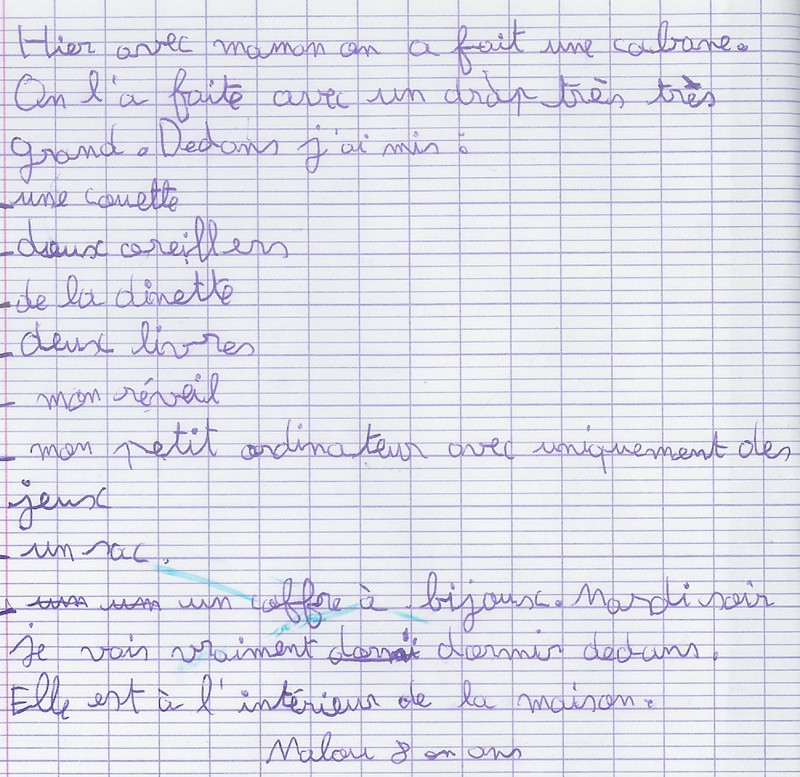 Hier avec maman on a fait une cabane.
On l'a faite avec un drap très très
grand. Dedans j'ai mis :
- une couette
- deux oreillers
- de la dinette
- deux livres
- mon réveil
- mon petit ordinateur avec uniquement des
jeux
- un sac.
- un coffre à bijoux. Mardi soir
je vais vraiment dormir dedans.
Elle est à l'intérieur de la maison.
Malou 8 ans